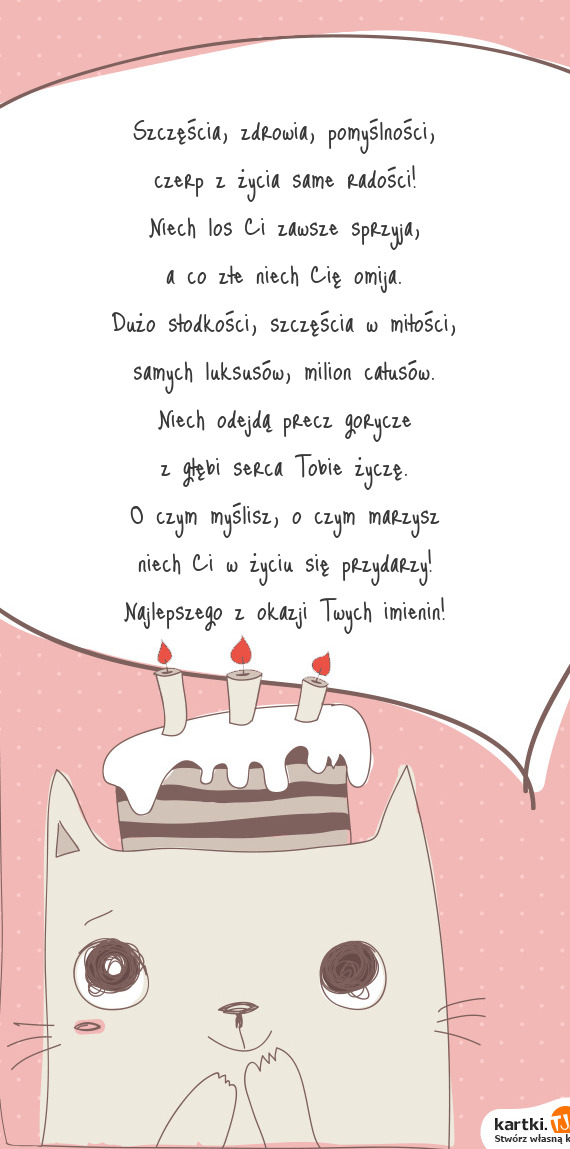 Szczęścia, zdrowia, pomyślności,
czerp z życia same radości!
Niech los Ci zawsze sprzyja,
a co złe niech Cię omija.
Dużo słodkości, szczęścia w miłości,
samych luksusów, milion całusów.
Niech odejdą precz gorycze
z głębi serca Tobie życzę.
O czym myślisz, o czym marzysz
niech Ci w życiu się przydarzy!
Najlepszego z okazji Twych imienin!
kartki.TJ
Stwórz własną k